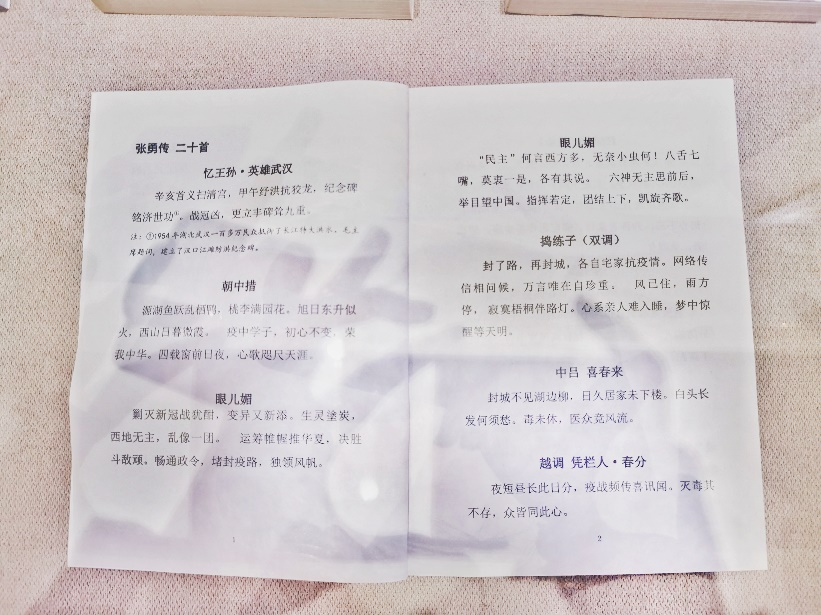 张勇传 二十首
忆王孙·英雄武汉
辛亥首义扫清宫，甲午纾洪抗狡龙，纪念碑
铭济世功①。战冠凶，更立丰碑耸九重。
注：①1954年湖北武汉一百多万民众抵御了长江特大洪水。毛主
席题词，建立了汉口江滩防洪纪念碑。
朝中措
源湖鱼跃乱栖鸭，桃李满园花。旭日东升似
火，西山日暮微霞。 疫中学子，初心不变，荣
我中华。四载窗前日夜，心歌咫尺天涯。
眼儿媚
剿灭新冠战犹酣，变异又新添。生灵塗炭，
西地无主，乱像一团。 运筹帷幄推华夏，决胜
斗敌顽。畅通政令，堵封疫路，独领风帆。
1
眼儿媚
“民主”何言西方多，无奈小虫何！八舌七
嘴，莫衷一是，各有其说。 六神无主思前后，
举目望中国。指挥若定，团结上下，凯旋齐歌。
捣练子（双调）
封了路，再封城，各自宅家抗疫情。网络传
信相问候，万言唯在自珍重。 风已住，雨方
停，寂寞梧桐伴路灯。心系亲人难入睡，梦中惊
醒等天明。
中吕 喜春来
封城不见湖边柳，日久居家未下楼。白头长
发何须愁。毒未休，医众竞风流。
越调 凭栏人·春分
夜短昼长此日分，疫战频传喜讯闻。灭毒其
不存，众皆同此心。
2